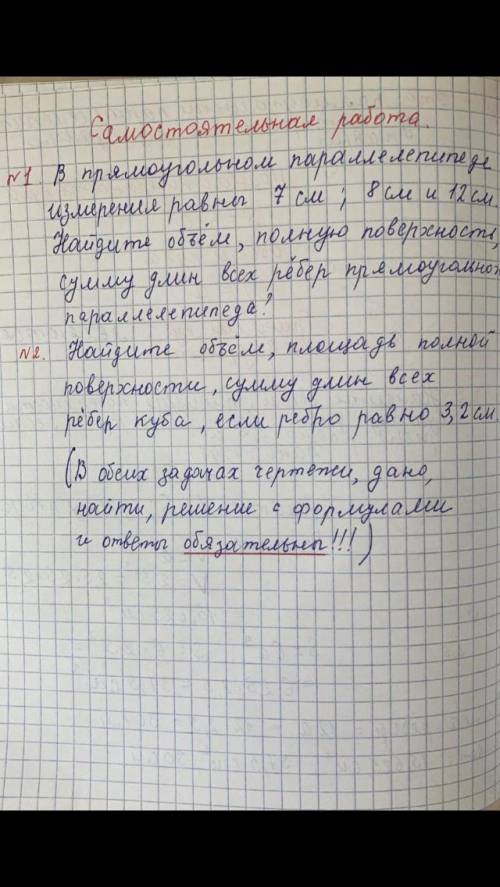 Самостоятельная работа.
№1 В прямоугольном параллелепипеде
измерения равны 7 см; 8 см и 12 см
Найдите объём, полную поверхность,
сумму длин всех рёбер прямоугольного
параллелепипеда?
№2. Найдите объём, площадь полной
поверхности, сумму длин всех
рёбер куба, если ребро равно 3,2 см.
(В обеих задачах чертежи, дано,
найти, решение с формулами
и ответы обязательны!!!)